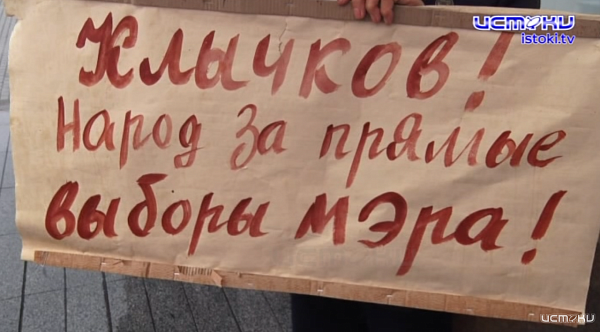 истоки
istoki.tv
Клычков!
Народ за прямые
выборы мэра!
истоки